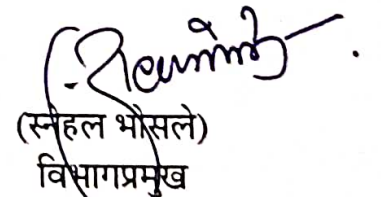 (स्नेहल भोसले)
विभागप्रमुख